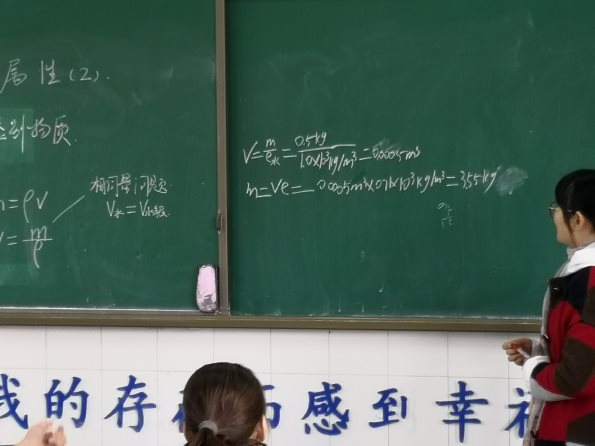 属性(2).
别物质
m=ρV
V=m/ρ
相同量问题
V水=V
V=m/ρ水=0.5kg/1.0×10³kg/m³=0.0005m³
m=Vρ=0.0005m³×0.71×10³kg/m³=3.55kg
我的存 而感到幸福